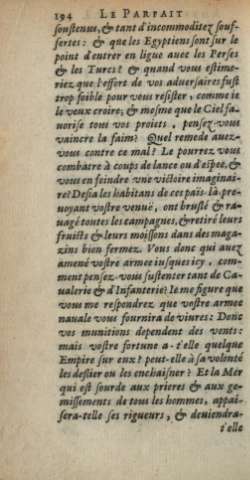 194 LE PARFAIT
soustenus, & tant d'incommoditez souf-
fertes: & que les Egyptiens sont sur le
point d'entrer en ligue avec les Perses
& les Turcs? & quand vous estime-
riez que l'effort de vos adversaires fust
trop foible pour vous resister, comme ie
le veux croire; & mesme que le Ciel fa-
uorise tous vos proiets, pensez-vous
vaincre la faim? Quel remede auez-
vous contre ce mal? Le pourrez vous
combatre à coups de lance ou d'espée, &
vous en feindre vne victoire imaginai-
re? Desia les habitans de ces païs-là pre-
uoyant vostre venuë, ont bruslé & ra-
uagé toutes les campagnes, & retiré leurs
fruicts & leurs moissons dans des maga-
zins bien fermez. Vous donc qui auez
amené vostre armee iusques icy, com-
ment pensez-vous sustenter tant de Ca-
ualerie & d'Infanterie? Ie me figure que
vous me respondrez que vostre armee
nauale vous fournira de viures: Donc
vos munitions dependent des vents:
mais vostre fortune a-t'elle quelque
Empire sur eux? peut-elle à sa volonté
les deslier ou les enchaisner? Et la Mer
qui est sourde aux prieres & aux ge-
missements de tous les hommes, appai-
sera-telle ses rigueurs, & deuiendra-
t'elle